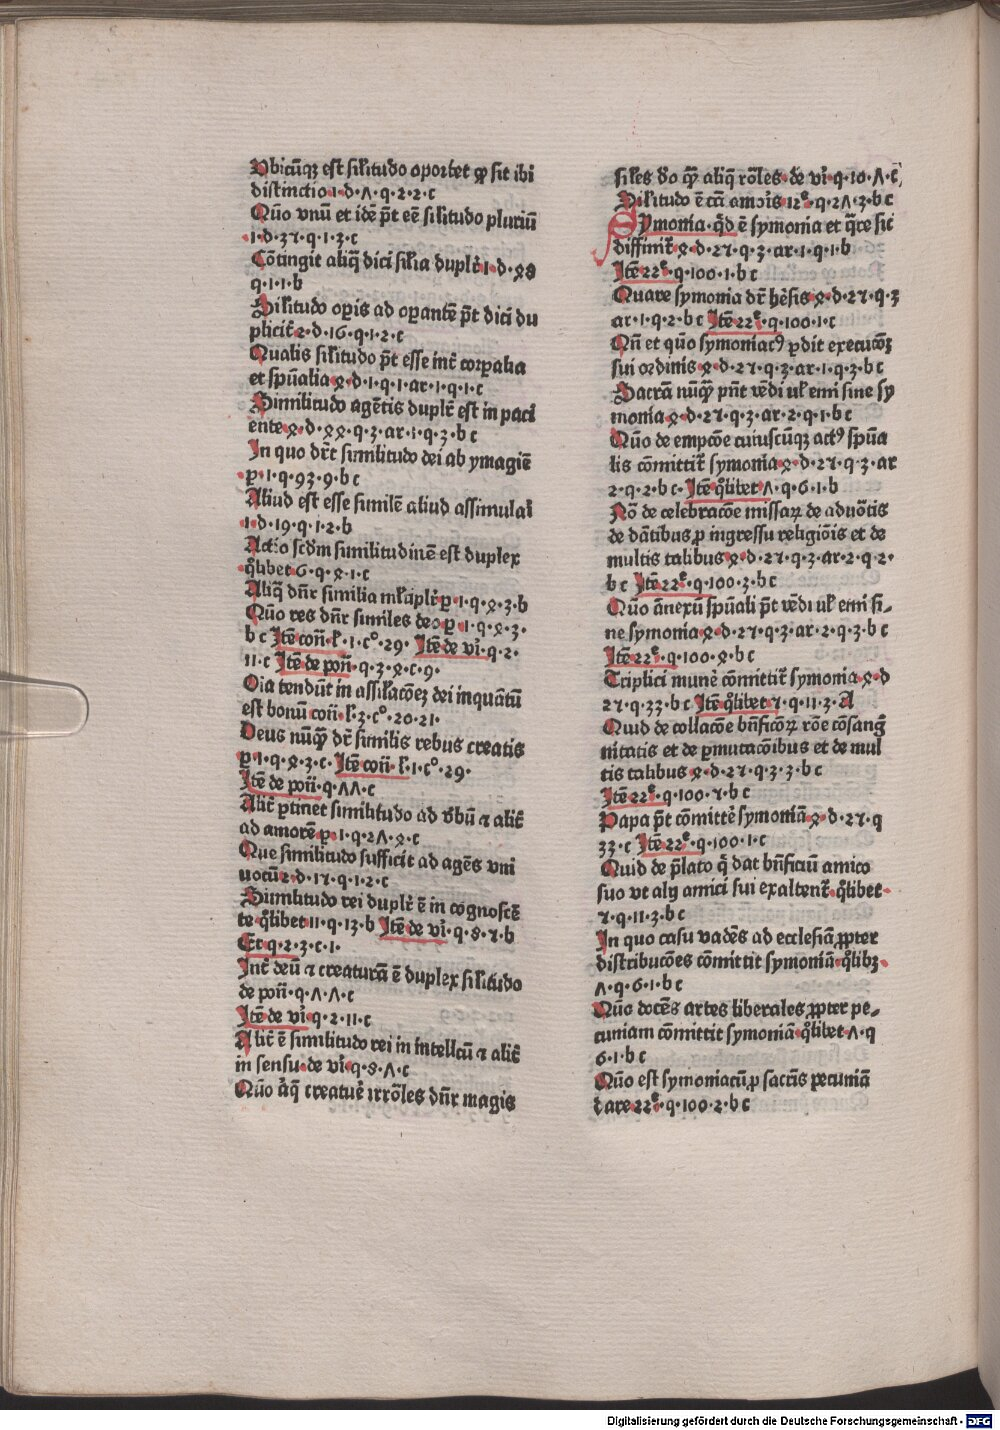 Vbicūqȝ est silitudo oportet ꝙ sit ibi
distinctio·1·d·Λ·q·2·2·c
Qūo vnū et idē pt̄ eē silitudo pluriū
·1·d·37·q·1·3·c
Cōtingit aliq̄ dici silia duplr̄·1·d·48
q·1·1·b
Silitudo op̄is ad op̄antē pt̄ dici du
plicit̄·2·d·16·q·1·2·c
Qualis silitudo pt̄ esse int̄ corpalia
et spūalia·4·d·1·q·1·ar·1·q·1·c
Similitudo agētis duplr̄ est in paci
ente·4·d·44·q·3·ar·1·q·3·b c
In quo dr̄t similitudo dei ab ymagiē
·p̄·1·q·93·9·b c
Aliud est esse similē aliud assimulari
·1·d·19·q·1·2·b
Actio scdm similitudinē est duplex
·q̄libet·6·q·4·1·c
Aliq̄ dn̄r similia mltiplr̄ p̄·1·q·4·3·b
Qūo res dn̄r similes deo·p̄·1·q·4·3·
b c Itē con̄·l̄·1·c°·29· Itē de vī·q·2·
11·c Itē de pon̄·q·3·4·c·9·
Oīa tendūt in assilacōeȝ dei inquātū
est bonū con̄·l̄·3·c°·20·21·
Deus nūqꝫ dr̄ similis rebus creatis
p̄·1·q·4·3·c· Itē con̄·l̄·1·c°·29·
Itē de pon̄·q·ΛΛ·c
Alit̄ ꝑtinet similitudo ad v̄bū ⁊ alit̄
ad amorē p̄·1·q·2Λ·4·c
Que similitudo sufficit ad agēs vni
uocū·2·d·17·q·1·2·c
Similitudo rei duplr̄ ē in cognoscē
te q̄libet·11·q·13·b Itē de vī·q·8·7·b
Et q·2·3·c·1·
Int̄ deū ⁊ creaturā ē duplex silitudo
de pon̄·q·Λ·Λ·c
Itē de vī·q·2·11·c
Alit̄ ē similitudo rei in intellcū ⁊ alit̄
in sensu·de vī·q·8·Λ·c
Qūo āq̄ creatuē irrōles dn̄r magis
siles deo qꝫ aliq̄ rōles·de vī·q·10·Λ·c
Silitudo ē cā amoris 12ᵉ·q·2Λ·3·b c
Symonia·q̄d ē symonia et q̄re sic
diffinit̄·4·d·27·q·3·ar·1·q·1·b
Itē 22ᵉ·q·100·1·b c
Quare symonia dr̄ hēsis·4·d·27·q·3
ar·1·q·2·b c Itē 22ᵉ·q·100·1·c
Qn̄ et qūo symoniacꝰ ꝑdit execucōȝ
sui ordinis·4·d·27·q·3·ar·1·q·3·b c
Sacrā nūqꝫ pn̄t vēdi ul̄ emi sine sy
monia·4·d·27·q·3·ar·2·q·1·b c
Qūo de empcōe cuiuscūqȝ actꝰ spūa
lis cōmittit̄ symonia·4·d·27·q·3·ar
2·q·2·b c· Itē q̄libet Λ·q·6·1·b
Nō de celebracōe missaꝝ de aduōtis
de dātibus ꝓ ingressu religiōis et de
multis talibus·4·d·27·q·3·ar·2·q·2·
b c Itē 22ᵉ·q·100·3·b c
Qūo ānexū spūali pt̄ vēdi ul̄ emi si-
ne symonia·4·d·27·q·3·ar·2·q·3·b c
Itē 22ᵉ·q·100·4·b c
Triplici munē cōmittit̄ symonia·4·d
27·q·33·b c Itē q̄libet·7·q·11·3·A
Quid de collacōe bn̄ficōꝝ rōe cōsanḡ
nitatis et de ꝑmutacōibus et de mul
tis talibus·4·d·27·q·3·3·b c
Itē 22ᵉ·q·100·7·b c
Papa pt̄ cōmittē symoniā·4·d·27·q
33·c Itē 22ᵉ·q·100·1·c
Quid de p̄lato q̄ dat bn̄ficiū amico
suo vt alij amici sui exaltent̄·q̄libet·
7·q·11·3·b c
In quo casu vadēs ad ecclesiā ꝓpter
distribucōes cōmittit symoniā·q̄libȝ·
Λ·q·6·1·b c
Qūo docēs artes liberales ꝓpter pe-
cuniam cōmittit symoniā·q̄libet·Λ·q
6·1·b c
Qūo est symoniacū ꝓ sacrīs pecuniā
dare 22ᵉ·q·100·2·b c
Digitalisierung gefördert durch die Deutsche Forschungsgemeinschaft - DFG